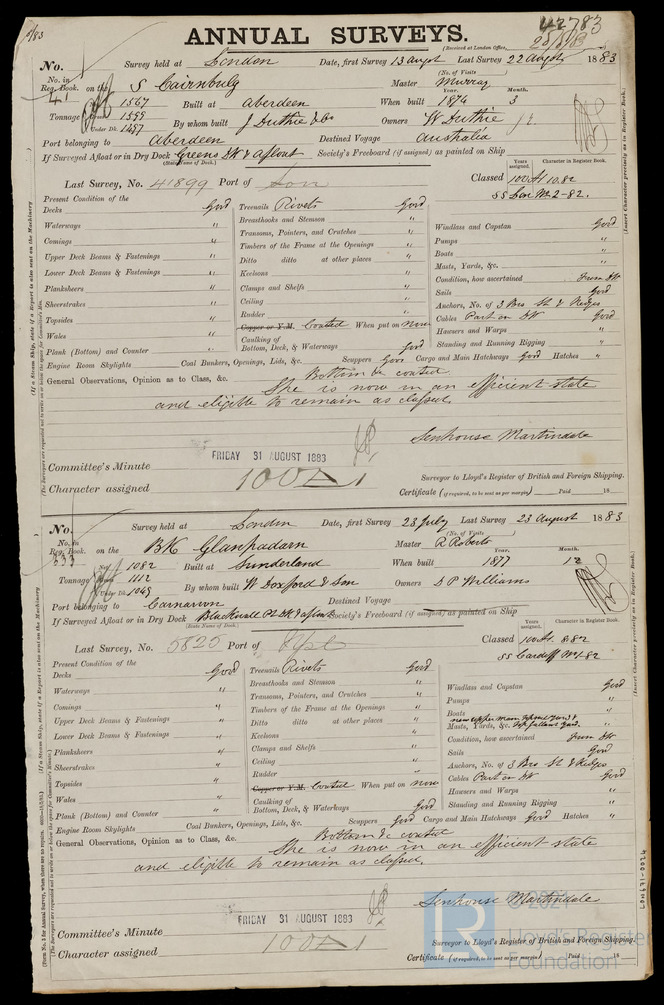 ANNUAL SURVEYS.
42783
(Received at London Office, 28/8/83)
No. Survey held at London Date, first Survey 13 augt Last Survey 22 Augt 1883
(No. of Visits)
No. in Reg. Book. 41 on the S Cairnbulg Master Murray
Year. Month.
1567 Built at Aberdeen When built 1874 3
Tonnage 1599
Under Dk. 1497 By whom built J Duthie & Co Owners W Duthie
Port belonging to Aberdeen Destined Voyage Australia
If Surveyed Afloat or in Dry Dock Greens DK & Afloat Society's Freeboard (if assigned) as painted on Ship
(State Name of Dock.)
Years assigned. Character in Register Book.
Last Survey, No. 41899 Port of Lon Classed 100 A1 10.82
SS Lon No 2-82.
Present Condition of the
Decks Good
Waterways "
Comings "
Upper Deck Beams & Fastenings "
Lower Deck Beams & Fastenings "
Planksheers "
Sheerstrakes "
Topsides "
Wales "
Plank (Bottom) and Counter "
Engine Room Skylights
Treenails Rivets Good
Breasthooks and Stemson "
Transoms, Pointers, and Crutches "
Timbers of the Frame at the Openings "
Ditto ditto at other places "
Keelsons "
Clamps and Shelfs "
Ceiling "
Rudder "
Copper or Y.M. Coated When put on now
Caulking of Bottom, Deck, & Waterways Good
Windlass and Capstan Good
Pumps "
Boats "
Masts, Yards, &c. "
Condition, how ascertained From DK
Sails Good
Anchors, No. of 3 Bro St & Kedges
Cables Part on DK Good
Hawsers and Warps "
Standing and Running Rigging "
Coal Bunkers, Openings, Lids, &c. Scuppers Good Cargo and Main Hatchways Good Hatches "
General Observations, Opinion as to Class, &c. Bottom &c coated
She is now in an efficient state
and eligible to remain as classed.
Senhouse Martindale
FRIDAY 31 AUGUST 1883
Committee's Minute
Character assigned 100 A1
Surveyor to Lloyd's Register of British and Foreign Shipping.
Certificate (if required, to be sent as per margin) Paid 18
No. Survey held at London Date, first Survey 23 July Last Survey 23 August 1883
(No. of Visits)
No. in Reg. Book. 333 on the BK Glanpadarn Master R Roberts
Year. Month.
Net 1082 Built at Sunderland When built 1877 12
Tonnage Gross 1112
Under Dk. 1049 By whom built W Doxford & Son Owners D P Williams
Port belonging to Carnarvon Destined Voyage
If Surveyed Afloat or in Dry Dock Blackwall Pt DK & afloat Society's Freeboard (if assigned) as painted on Ship
(State Name of Dock.)
Years assigned. Character in Register Book.
Last Survey, No. 5825 Port of Classed 100 A1 8.82
SS Cardiff No 1-82
Present Condition of the
Decks Good
Waterways "
Comings "
Upper Deck Beams & Fastenings "
Lower Deck Beams & Fastenings "
Planksheers "
Sheerstrakes "
Topsides "
Wales "
Plank (Bottom) and Counter "
Engine Room Skylights
Treenails Rivets Good
Breasthooks and Stemson "
Transoms, Pointers, and Crutches "
Timbers of the Frame at the Openings "
Ditto ditto at other places "
Keelsons "
Clamps and Shelfs "
Ceiling "
Rudder "
Copper or Y.M. Coated When put on now
Caulking of Bottom, Deck, & Waterways Good
Windlass and Capstan Good
Pumps "
Boats "
Masts, Yards, &c.
Condition, how ascertained From DK
Sails Good
Anchors, No. of 3 Bro St & Kedges
Cables Part on DK Good
Hawsers and Warps "
Standing and Running Rigging "
Coal Bunkers, Openings, Lids, &c. Scuppers Good Cargo and Main Hatchways Good Hatches "
General Observations, Opinion as to Class, &c. Bottom &c coated
She is now in an efficient state
and eligible to remain as classed.
Senhouse Martindale
FRIDAY 31 AUGUST 1883
Committee's Minute
Character assigned 100 A1
Surveyor to Lloyd's Register of British and Foreign Shipping.
Certificate (if required, to be sent as per margin) Paid 18
LON671-0024
© 2021
Lloyd's Register
Foundation